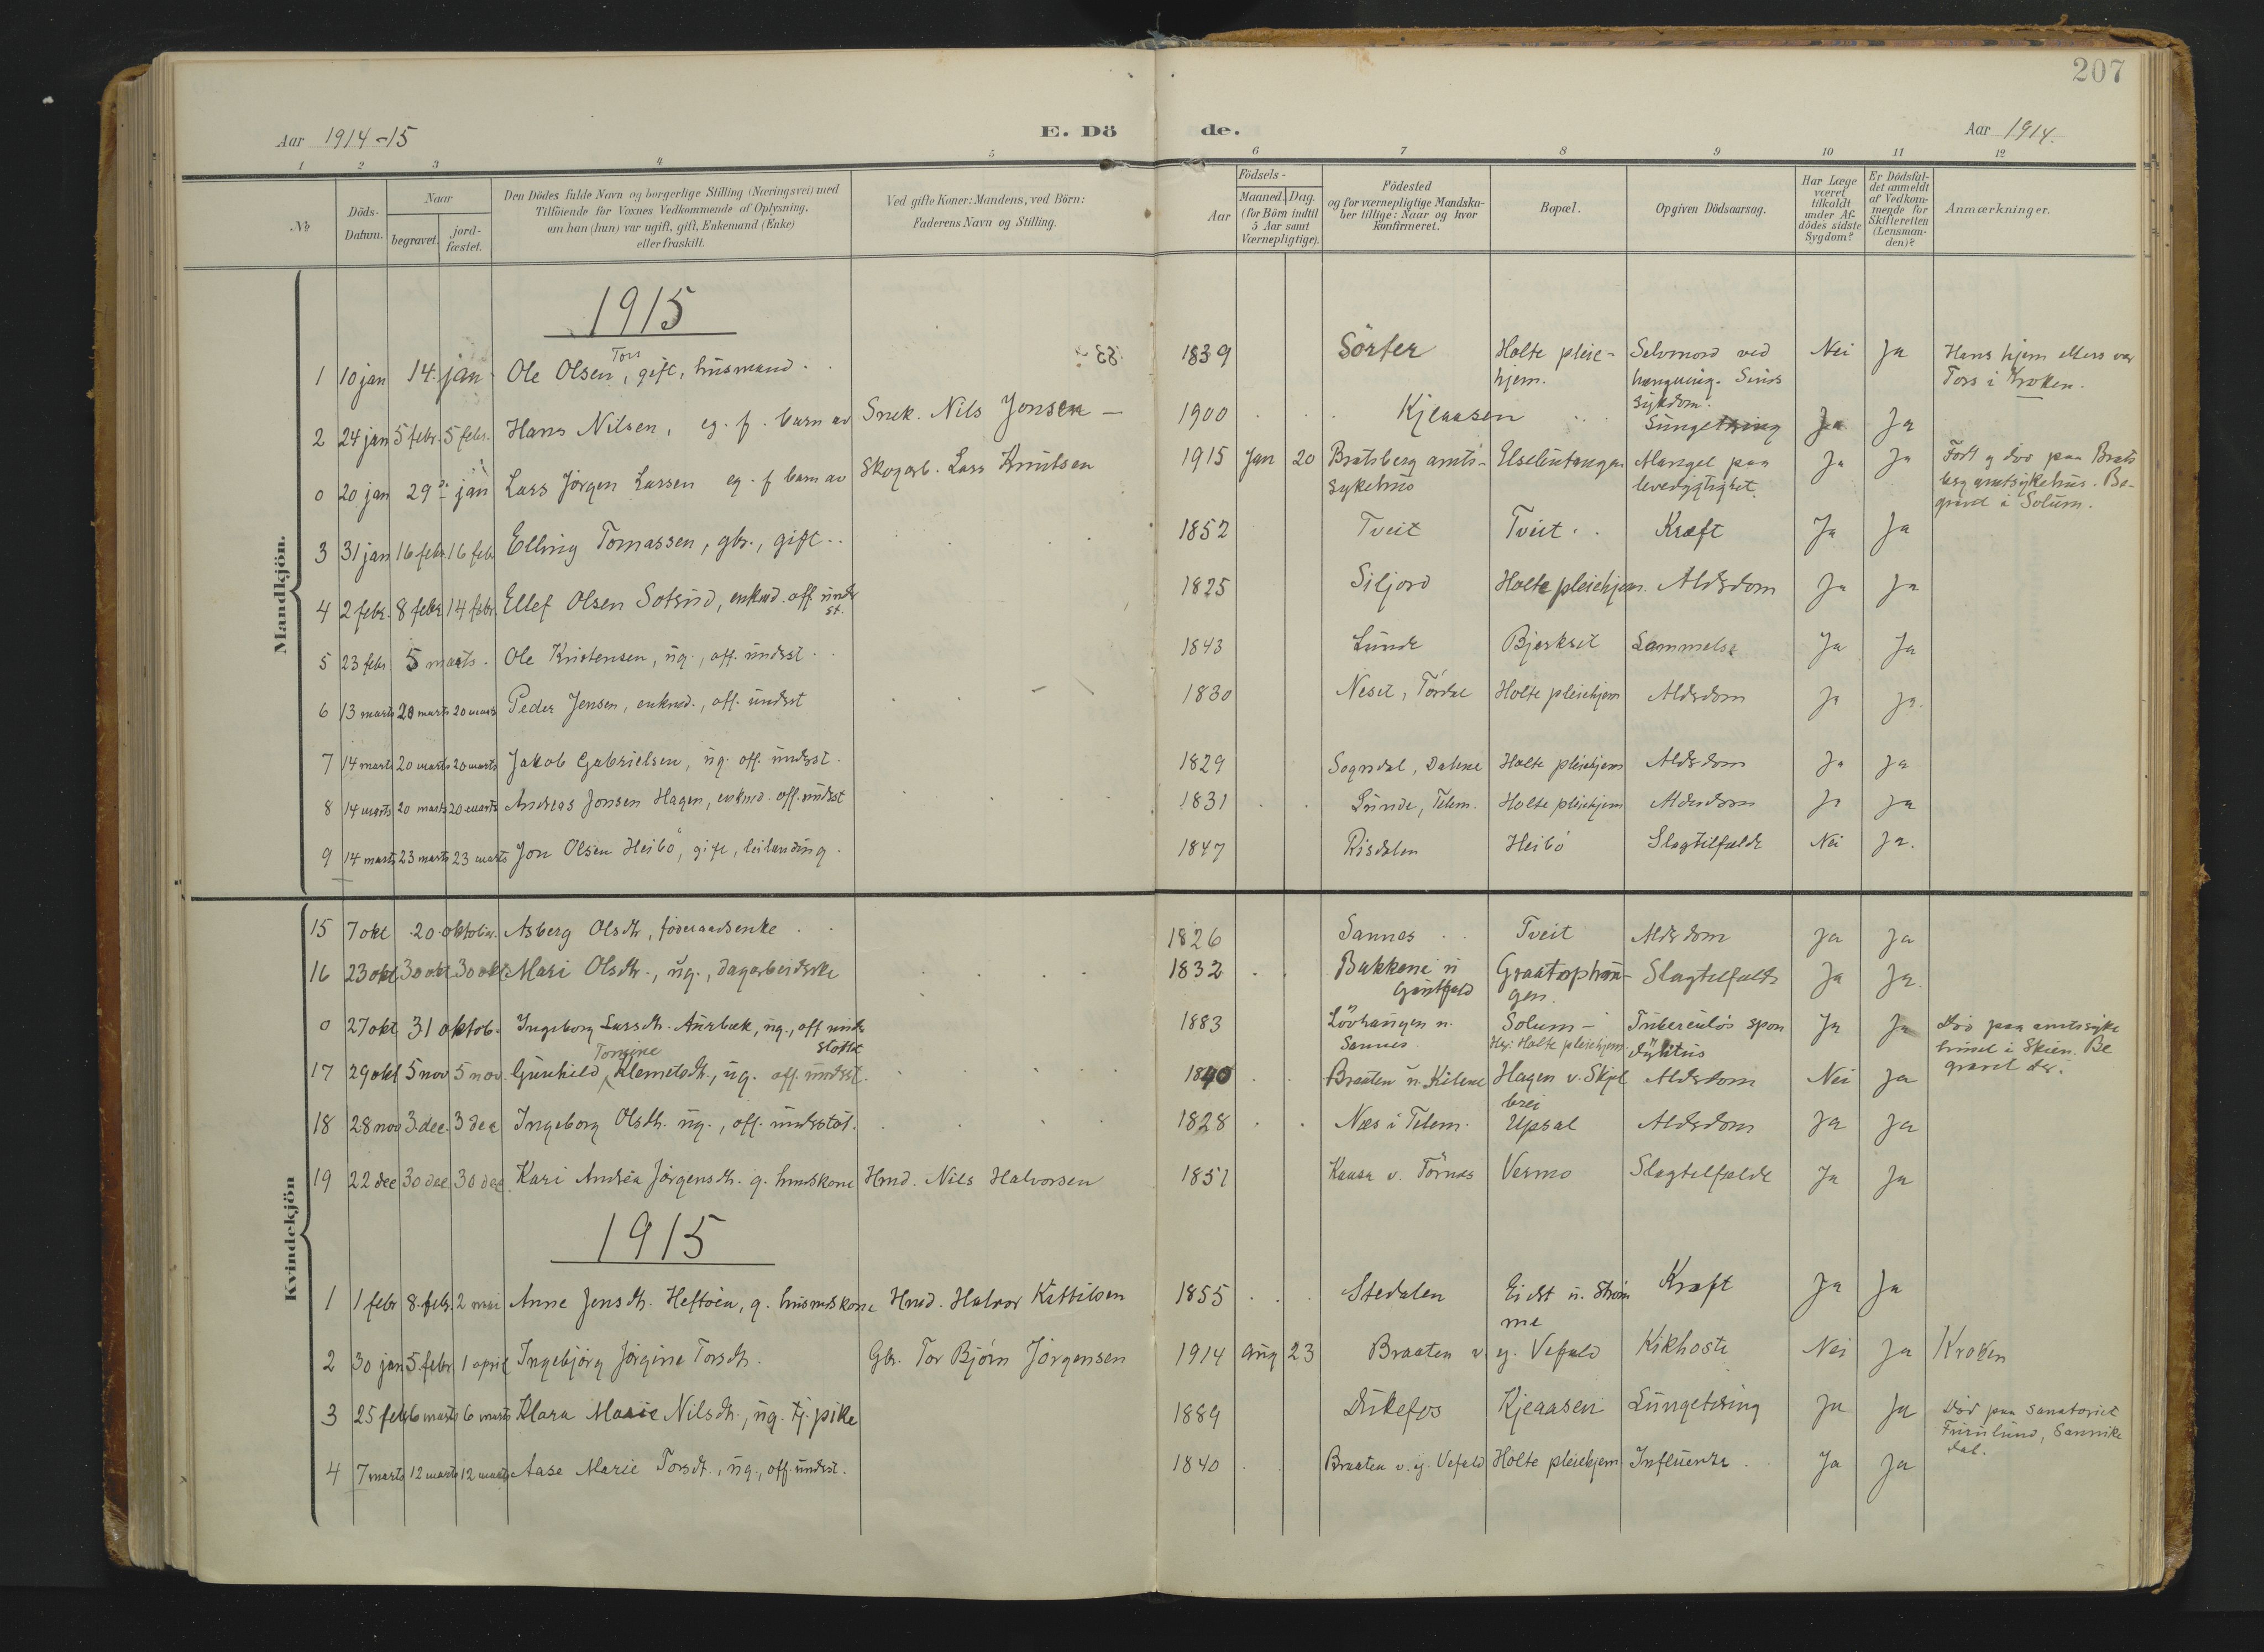 207
Aar 1914-15
E. Dö de.
Aar 1914.
1 2 3 4 5 6 7 8 9 10 11 12
No
Döds-Datum.
Naar
begravet.
jord-fæstet.
Den Dödes fulde Navn og borgerlige Stilling (Næringsvei) med
Tilföiende for Voxnes Vedkommende af Oplysning,
om han (hun) var ugift, gift, Enkemand (Enke)
eller fraskilt.
Ved gifte Koner: Mandens, ved Börn:
Faderens Navn og Stilling.
Födsels-
Aar
Maaned. Dag.
(for Börn indtil
5 Aar samt
Værnepligtige).
Födested
og for værnepligtige Mandska-
ber tillige: Naar og hvor
konfirmeret.
Bopæl.
Opgiven Dödsaarsag.
Har Læge
været
tilkaldt
under Af-
dödes sidste
Sygdom?
Er Dödsfal-
det anmeldt
af Vedkom-
mende for
Skifteretten
(Lensman-
den)?
Anmærkninger.
Mandkjön.
1915
1 10 jan 14. jan Ole Olsen Tors, gift, husmand. 1839 Sörfer Holte pleie-hjem. Selvmord ved hængning. Sinds sykdom. Nei Ja Hans hjem ellers var Tors i Kroken.
2 24 jan 5 febr. 5 febr. Hans Nilsen, eg. f. barn av Snek. Nils Jonsen 1900 Kjeaasen Lungetæring Ja Ja
0 20 jan 29 jan Lars Jörgen Larsen eg. f barn av Skogarb. Lars Knutsen 1915 Jan 20 Bratsberg amts-sykehus Mangel paa levedygtighet. Ja Ja Født og død paa Bratsberg amtsykehus. Begravd i Solum.
3 31 jan 16 febr. 16 feb Elling Tomassen, gbr., gift. 1852 Tveit Tveit Kræft Ja Ja
4 2 febr. 8 febr 14 febr. Ellef Olsen Sotrud, enkmd. off underst. 1825 Siljord Holte pleiehjem. Aldersdom Ja Ja
5 23 febr 5 marts. Ole Kristensen, ug., off. underst. 1843 Lunde Bjerkset Lammelse Ja Ja
6 13 marts 20 marts 20 marts Peder Jensen, enkmd., off. underst 1830 Neset, Tördal Holte pleiehjem Aldersdom Ja Ja.
7 14 marts 20 marts 20 marts Jakob Gabrielsen, ug. off. underst. 1829 Sogndal, Dalene Holte pleiehjem Aldersdom Ja Ja
8 14 marts 20 marts 20 marts Andreas Jonsen Hagen, enkmd. off. underst 1831 Lunde, Telem. Holte pleiehjem Aldersdom Ja Ja
9 14 marts 23 marts 23 marts Jon Olsen Heibö, gift, leilending. 1847 Risdalen Heibö Slagtilfælde Nei Ja.
Kvindekjön
15 7 okt 20 oktober. Asberg Olsdtr, föderaadsenke 1826 Sannes Tveit Aldersdom Ja Ja
16 23 okt. 30 okt 30 okt Mari Olsdtr., ug., dagarbeiderske 1832 Bakkene u Slagtilfælde Ja Ja.
0 27 okt 31 oktob. Ingeborg Larsdtr. Aurbæk, ug., off understøttet 1883 Lövhaugen u. Sannes Solum - Hj: Holte pleiehjem. Tuberculös spondylitus Ja Ja Död paa amtssykehuset i Skien. Begravet der.
17 29 okt 5 nov 5 nov. Gunhild Tomine Klemetsdtr., ug. off. underst. 1840 Braaten u. Kilene Hagen v. Skjelbrei Aldersdom Nei Ja
18 28 nov 3. dec. 3 dec Ingeborg Olsdtr. ug., off. understöt. 1828 Næs i Telem. Upsal Aldersdom Ja Ja
19 22 dec 30 dec. 30 dec. Kari Andrea Jörgensdtr. g. hmdskone Hmd. Nils Halvorsen 1851 Kaasa v. Törnes Vermo Slagtilfælde Ja Ja
1915
1 1 febr 8. febr. 2 mai Anne Jensdtr. Heftöen, g. husmdskone Hmd. Halvor Kittilsen 1855 Stedalen Eidet u. Strömme Kræft Ja Ja
2 30 jan 5 febr. 1 april Ingebjörg Jörgine Torsdtr. Gbr. Tor Björn Jörgensen 1914 Aug 23 Braaten v. ej. Vefald Kikhoste Nei Ja Kroken
3 25 febr 6 marts 6 marts Klara Marie Nilsdtr., ug. tj. pike 1889 Dukefos Kjeaasen Lungetæring Ja Ja Död paa sanatoriet Furulund, Sannikedal.
4 7 marts 12 marts 12 marts Aase Marie Torsdt., ug., off. underst. 1840 Braaten v. ej. Vefald Holte pleiehjem Influenza Ja Ja